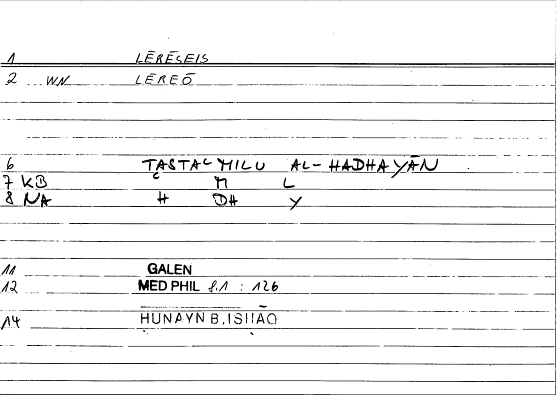 1 LĒRĒSEIS
2 WN LĒREŌ
6 TASTAᶜMILU AL-HADHAYĀN
7 KB ᶜ M L
8 NA H DH Y
11 GALEN
12 MED PHIL 8.1 : 126
14 ḤUNAYN B. ISḤĀQ